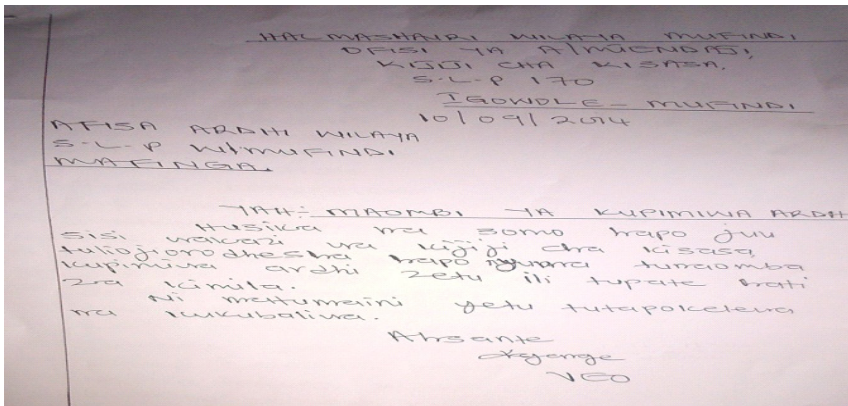 HALMASHAURI WILAYA MUFINDI
OFISI YA A/MTENDAJI,
KIJIJI CHA KISASA,
S.L.P 170
IGOWOLE - MUFINDI
10/09/2014
AFISA ARDHI WILAYA
S.L.P W/MUFINDI
MAFINGA.
YAH:- MAOMBI YA KUPIMIWA ARDHI
Husika na somo hapo juu
sisi wakazi wa kijiji cha kisasa,
tuliojiorodhesha hapo nyuma tunaomba
kupimiwa ardhi zetu ili tupate hati
za kimila.
Ni matumaini yetu tutapokelewa
na kukubaliwa.
Ahsante
VEO